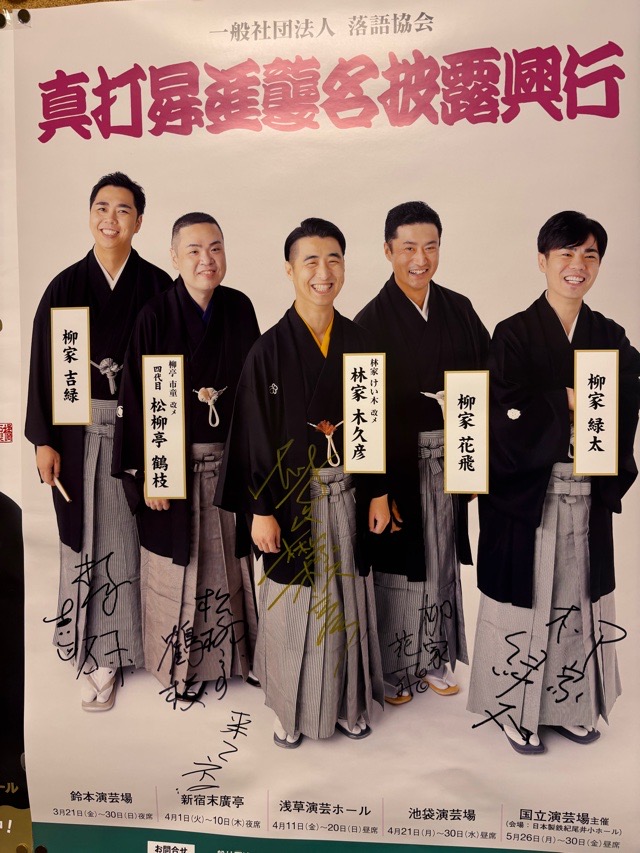 一般社団法人 落語協会
真打昇進襲名披露興行
柳家 吉緑
柳亭 市童 改メ
四代目 松柳亭 鶴枝
林家 けい木 改メ
林家 木久彦
柳家 花飛
柳家 緑太
柳家
花飛
鈴本演芸場
3月21日(金)~30日(日)夜席
新宿末廣亭
4月1日(火)~10日(木)夜席
浅草演芸ホール
4月11日(金)~20日(日)昼席
池袋演芸場
4月21日(月)~30日(水)昼席
国立演芸場主催
(会場:日本製鉄紀尾井小ホール)
5月26日(月)~30日(金)昼席
お問合せ
ール
い!